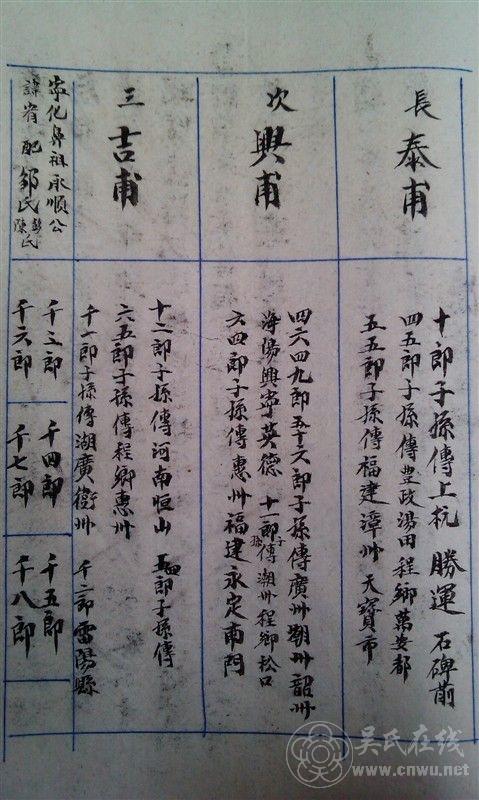 長 泰甫
十郎子孫傳上杭 勝運 石碑前
四五郎子孫傳豊政湯田程鄉萬安都
五五郎子孫傳福建漳州 天寶市
次 興甫
四六四九郎五十六郎子孫傳廣州潮州韶州
海陽興寧英德 十一郎子孫傳潮州程鄉松口
六四郎子孫傳惠州福建永定南門
三 吉甫
十二郎子孫傳河南恒山 五四郎子孫傳
六五郎子孫傳程鄉惠州
千一郎子孫傳湖廣衡州 千二郎雷陽縣
寧化鼻祖承順公
諱宥 配鄒氏 彭氏 陳氏
千三郎 千四郎 千五郎
千六郎 千七郎 千八郎
吴氏在线
www.cnwu.net